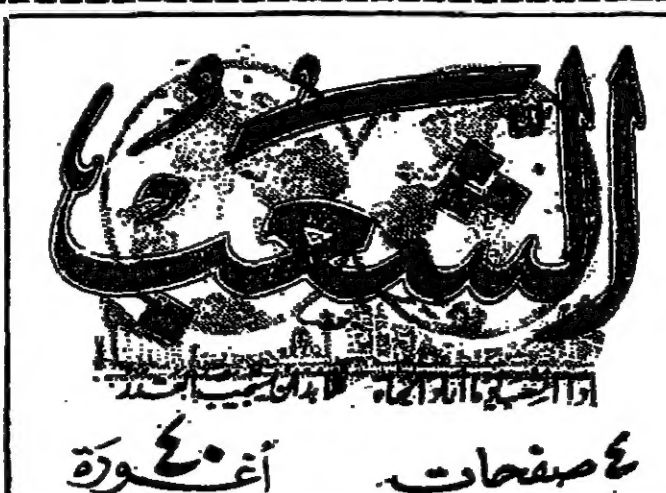 الشعب
اذا الشعب يوما أراد الحياة فلا بد ان يستجيب القدر
٤ صفحات ٤٠ أغورة